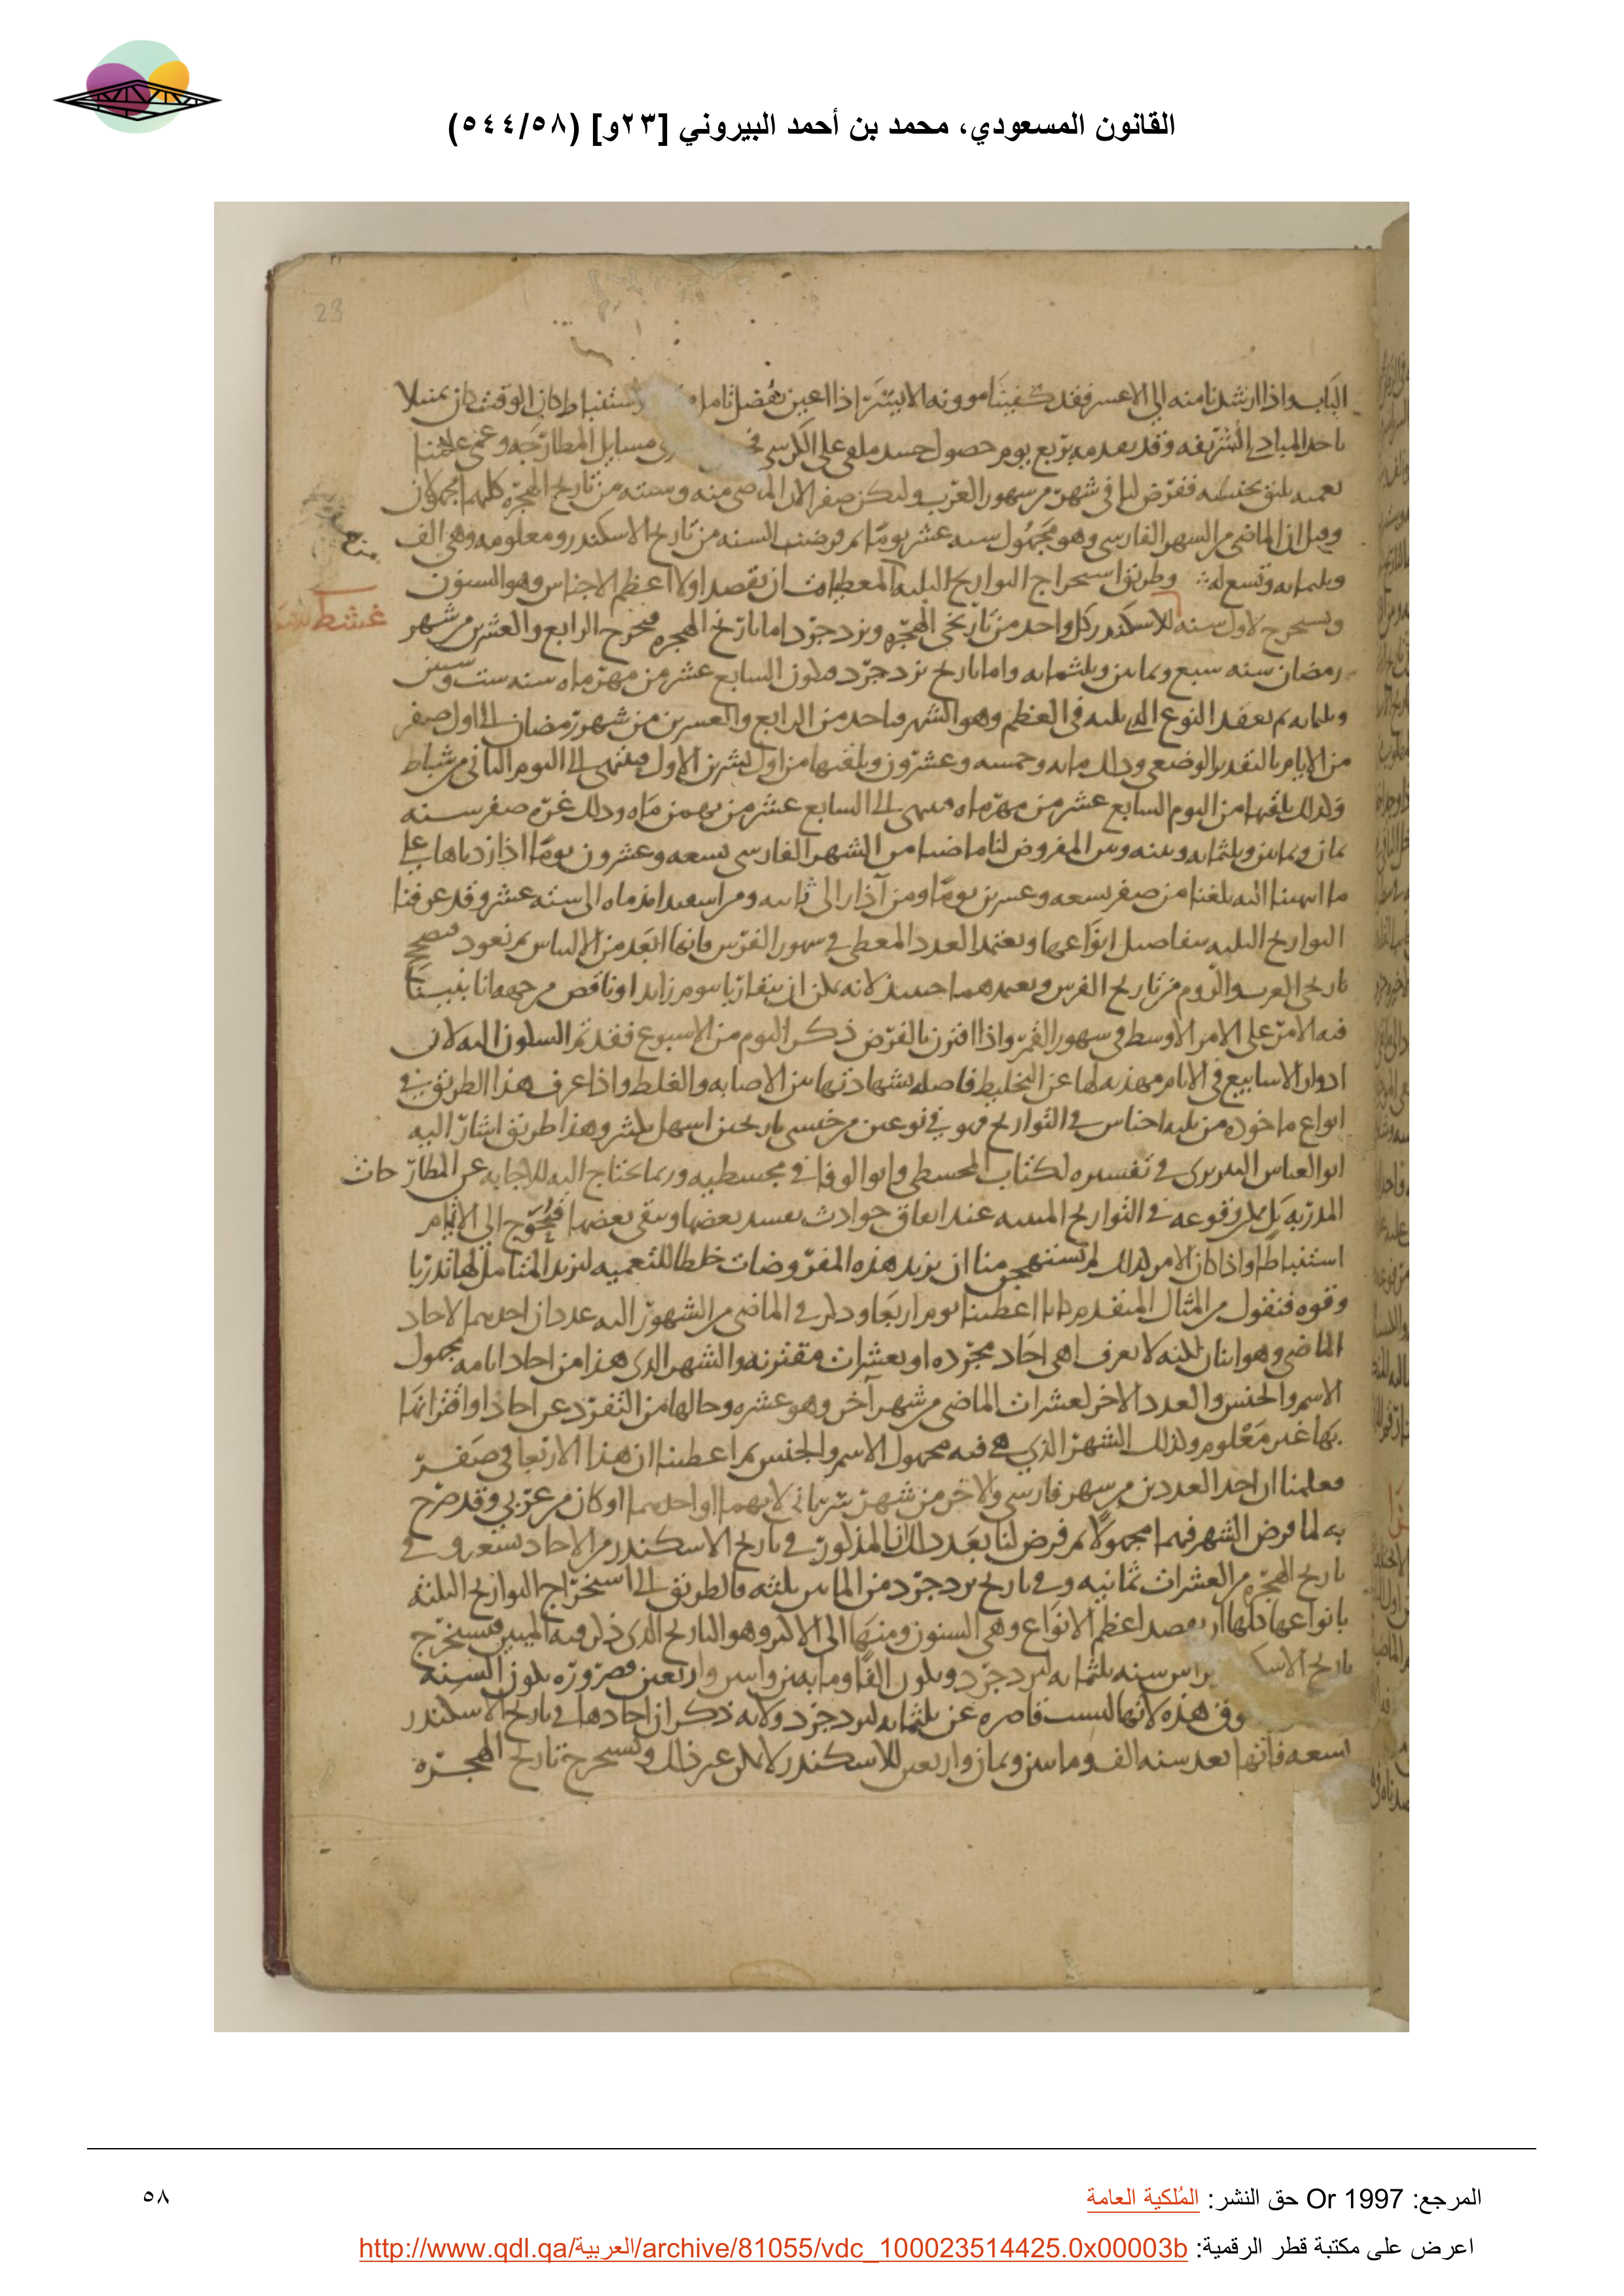 القانون المسعودي، محمد بن أحمد البيروني [٢٣و] (٥٤٤/٥٨)
23
الباب واذا ارشدنا منه الى الاعسر فقد كفينا موونه الايسر اذا اعين بفضل تامل استنباط كان الوقت كان متملا
باحد المبادى الشريفه وقد يعدمه يربع يوم حصول جسد ملقى على الكرسى مسايل المطارحه وعمى علينا
تعميه يليق بجنسه ففرض لنا فى شهر من شهور العرب وليكن صفر الا ان الماضى منه وسنته من تاريخ الهجره كلهما مجهولان
وقيل ان الماضى من الشهر الفارسى وهو مجهول سته عشر يوما ثم فرضت السنه من تاريخ الاسكندر ومعلومه وهى الف
وثلثمايه وتسع له وطريق استخراج التواريخ الثلثه المعطيات ان يقصد اولا اعظم الاجناس وهو السنون
ونستخرج لاول سنه للاسكندر كل واحد من تاريخى الهجره ويزدجرد اما تاريخ الهجره فيخرج الرابع والعشرين من شهر
رمضان سنه سبع وثمانين وثلثمايه واما تاريخ يزدجرد فيكون السابع عشر من مهرماه سنه ست وستين
وثلثمايه ثم نقصد النوع الذى يليه فى العظم وهو الشهر فناخذ من الرابع والعشرين من شهر رمضان الى اول صفر
من الايام بالتقدير الوضعى وذلك مايه وخمسه وعشرون ونلقيها من اول تشرين الاول فينتهى الى اليوم الثانى من شباط
وكذلك نلقيها من اليوم السابع عشر من مهرماه فينتهى الى السابع عشر من بهمن ماه وذلك غره صفر سنه
ثمان وثمانين وثلثمايه وبينه وبين المفروض لنا ماضيا من الشهر الفارسى تسعه وعشرون يوما اذا زدناها على
ما انتهينا اليه بلغنا من صفر تسعه وعشرين يوما ومن آذار الى ثالثه ومن اسفندارمذماه الى سته عشر وقد عرفنا
التواريخ الثلثه بتفاصيل انواعها ونعتمد العدد المعطى فى شهور الفرس فانها ابعد من الالتباس ثم نعود فنصحح
تاريخى العرب والروم من تاريخ الفرس ونعتمدهما حينئذ لانه يمكن ان يتغايرا بيوم زايد او ناقص من جهه انا بنينا
فيه الامر على الامر الاوسط فى شهور القمر واذا اقترن بالفرض ذكر اليوم من الاسبوع فقد تم السكون اليه لان
ادوار الاسابيع فى الايام مهذبه لها عن التخليط فاصله بشهادتها بين الاصابه والغلط واذا عرف هذا الطريق فى
انواع ماخوذه من ثلثه اجناس فى التواريخ فهو فى نوعين من جنسى تاريخين اسهل بكثير وهذا طريق اشار اليه
ابو العباس النيريزى فى تفسيره لكتاب المجسطى وابو الوفا فى مجسطيه وربما يحتاج اليه للاجابه عن المطارحات
المدربه بل يمكن وقوعه فى التواريخ المبنيه عند اتفاق حوادث يفسد بعضها ويبقى بعضها فيحوج الى الاتمام
استنباطا واذا كان الامر كذلك لم يستهجن منا ان نزيد هذه المفروضات خلطا للتعميه ليزيد المتامل لها تدربا
وقوه فنقول من المثال المتقدم كانا اعطينا يوم اربعا وذكر فى الماضى من الشهور اليه عددان احدهما الاحاد
الماضى وهو اثنان لكنه لا يعرف اهى احاد مجرده او بعشرات مقترنه والشهر الذى هذا من احاد ايامه مجهول
الاسم والجنس والعدد الاخر لعشرات الماضى من شهر آخر وهو عشره وحالها من التفرد عن احاد او اقترانها
بها غير معلوم وكذلك الشهر الذى هى فيه مجهول الاسم والجنس ثم اعطينا ان هذا الاربعا فى صفر
فعلمنا ان احد العددين من شهر فارسى والاخر من شهر سريانى لانهما او احدهما او كان من عربى وقد صرح
به لما فرض الشهر فيهما مجهولا ثم فرض لنا بعد ذلك ان المذكور فى تاريخ الاسكندر من الاحاد تسعه وفى
تاريخ الهجره من العشرات ثمانيه وفى تاريخ يزدجرد من المايين ثلثه فالطريق الى استخراج التواريخ الثلثه
بانواعها كلها ان نقصد اعظم الانواع وهى السنون ومنها الى الاكبر وهو التاريخ الذى ذكر فيه المئين فيستخرج
تاريخ براس سنه ثلثمايه ليزدجرد ويكون الفا ومايتين واثنين واربعين فضروره يكون السنه
فوق هذه لانها ليست قاصره عن ثلثمايه ليزدجرد ولانه ذكر ان احادها فى تاريخ الاسكندر
تسعه فانها بعد سنه الف ومايتين وثمان واربعين للاسكندر لا يمكن غير ذلك ونستخرج تاريخ الهجره
المرجع: Or 1997 حق النشر: المُلكية العامة
٥٨
اعرض على مكتبة قطر الرقمية: http://www.qdl.qa/العربية/archive/81055/vdc_100023514425.0x00003b